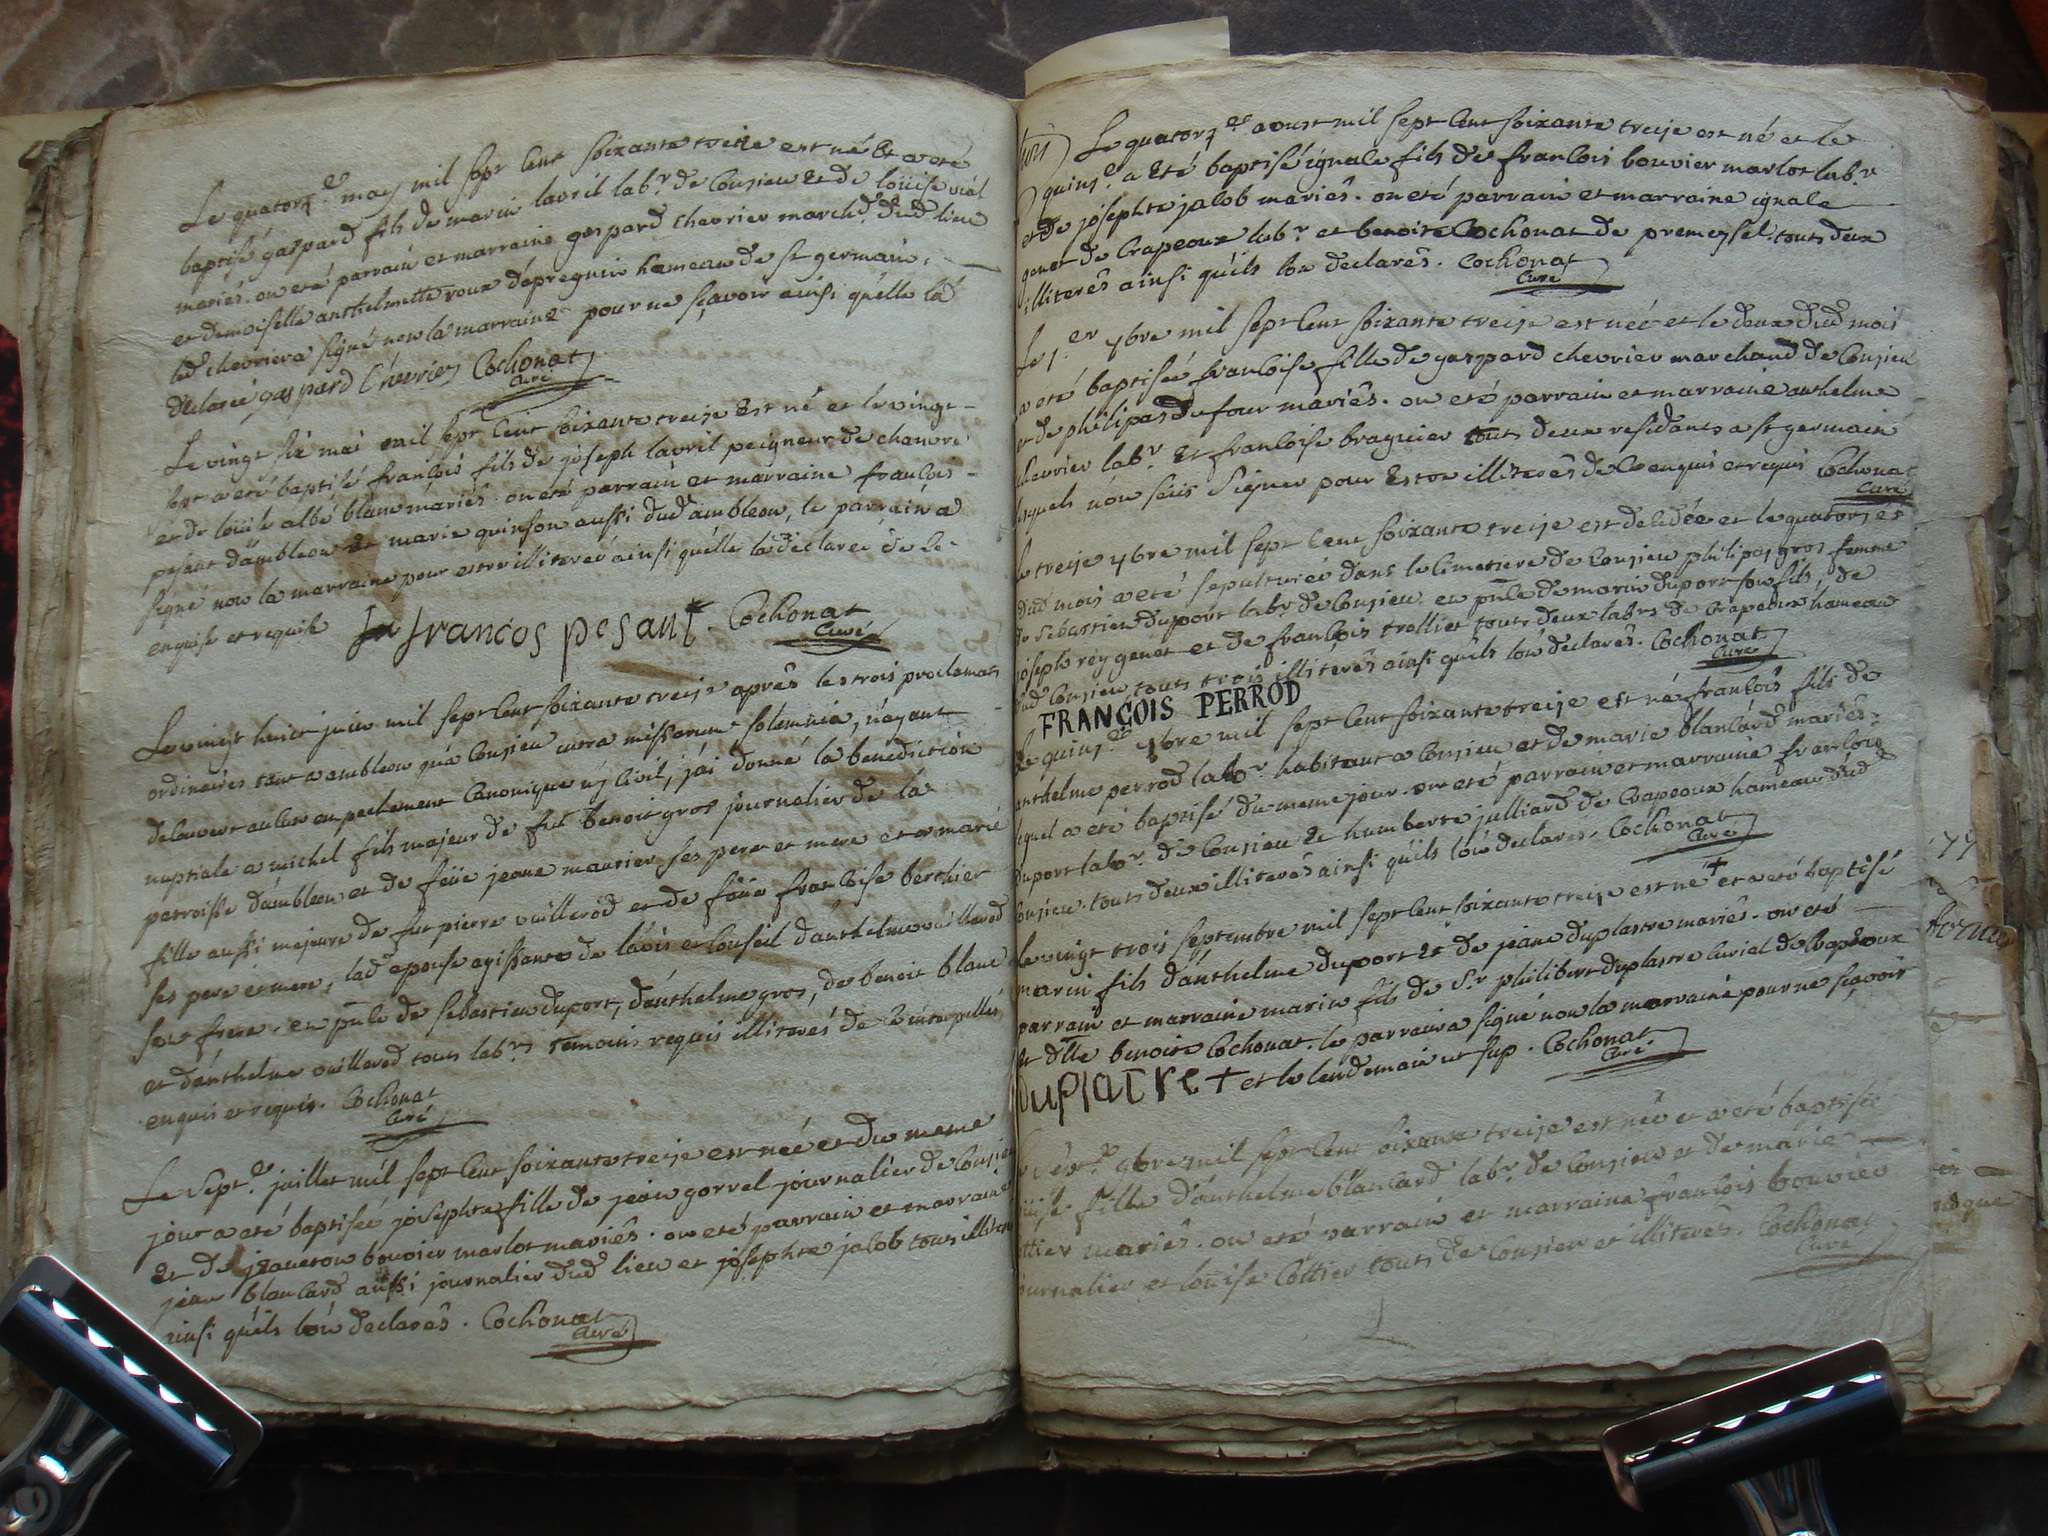 Le quatorz.e may mil sept cent soixante treize est né Et a eté
baptisé gaspard fils de marin lavril lab.r de Conzieu Et de loüise vial
mariés. on eté parrain et marraine gaspard chevrier march.d dud lieu
et demoiselle anthelmette roux de pregnin hameau de st germain.
led chevrier a signé non la marraine pour ne sçavoir ainsi qu'elle la
declaré gaspard Chevrier Cochonat
Curé
Le vingt six mai mil sept Cent soixante treize Est né et le vingt-
sept a eté baptisé françois fils de joseph lavril peigneur de chanvre
et de loüise albé blanc mariés. on eté parrain et marraine françois
pesant d'ambleon et marie quinson aussi dud ambleon, le parrain a
signé non la marraine pour estre illiterée ainsi qu'elle la declaré de ce
enquise et requise francos pesant. Cochonat
Curé
Le vingt huict juin mil sept Cent soixante treize aprês les trois proclamats
ordinaires tant a ambleon qu'a Conzieu intra missarum solemnia, n'ayant
decouvert aucun empechement Canonique nj Civil, j'ai donné la bénédiction
nuptiale a michel fils majeur de fut benoit gros journalier de la
parroisse d'ambleon et de feüe jeane maurier ses pere et mere et a marie
fille aussi majeure de fut pierre vuillerod et de feüe françoise berthier
ses pere et mere, lad epouse agissante de l'avis et Conseil d'anthelme vuillerod
son frere. en pnce de sebastien duport, d'anthelme gros, de benoit blanc
et d'anthelme vuillerod tous lab.rs temoins requis illiterés de ce interpellés
enquis et requis. Cochonat
Curé
Le sept.e juillet mil sept Cent soixante treize est née et du meme
jour a eté baptisée josephte fille de jean gorrel journalier de Conzieu
Et de jeaneton bouvier marlot mariés. on eté parrain et marraine
jean blancard aussi journalier dud lieu et josephte jacob tous illiterés
ainsi qu'ils l'on declarés. Cochonat
Curé
Le quatorz.e aoust mil sept Cent soixante treize est né et le
quinz.e a Eté baptisé ignace fils de françois bouvier marlot lab.r
et de josephte jacob mariés. on eté parrain et marraine ignace
genet de Crapeoux lab.r et benoite Cochonat de premeyzel. touts deux
illiterés ainsi qu'ils l'on declarés. Cochonat
Curé
Le 1.er 7bre mil sept Cent soixante treize est née et le deux dud mois
a été baptisée françoise fille de gaspard chevrier marchand de Conzieu
et de philipas dufour mariés. on eté parrain et marraine anthelme
chevrier lab.r Et françoise braguier touts deux residants a st germain
lesquels n'on sceus signer pour Estre illiterés de ce enquis et requis Cochonat
Curé
le treize 7bre mil sept Cent soixante treize est decedée et le quatorze
dud mois a eté sepulturée dans le Cimetiere de Conzieu philipas gros femme
de sebastien duport lab.r de Conzieu. en pnce de marin duport son fils, de
joseph rey genet et de françois trolliet touts deux lab.rs de Crapeoux hameau
dud Conzieu touts trois illiterés ainsi qu'ils l'on declarés. Cochonat
Curé
FRANÇOIS PERROD
Le quinz.e 7bre mil sept Cent soixante treize est né françois fils de
anthelme perrod lab.r habitant a Conzieu et de marie blancard mariés.
lequel a eté baptisé du meme jour. on eté parrain et marraine françois
duport lab.r de Conzieu Et humberte julliard de Crapeoux hameau dud
Conzieu. touts deux illiterés ainsi qu'ils l'on declarés. Cochonat
Curé
Le vingt trois septembre mil sept Cent soixante treize est né + et a eté baptisé
marin fils d'anthelme duport Et de jeane duplastre mariés. on eté
parrain et marraine marin fils de S.r philibert duplastre Curial de Crapeoux
et dlle benoite Cochonat. le parrain a signé non la marraine pour ne sçavoir
duplatre + et le lendemain ut sup. Cochonat
Curé
9bre mil sept Cent soixante treize est née et a eté baptisée
fille d'anthelme blancard lab.r de Conzieu et de marie
mariés. on eté parrain et marraine françois bouvier
journalier et loüise Cottier touts de Conzieu et illiterés. Cochonat
Curé